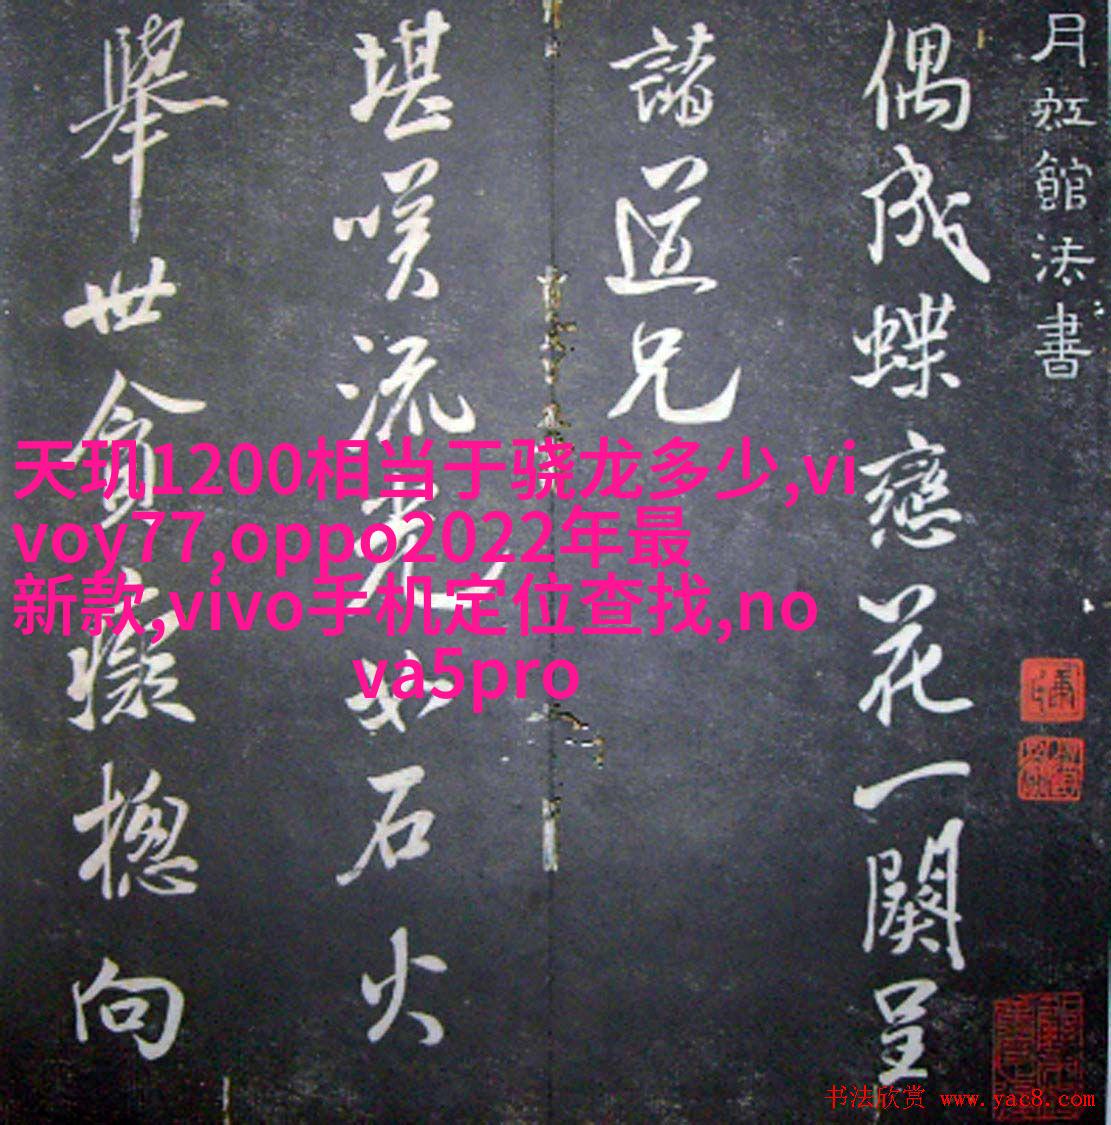 月虹館法書
偶成蝶戀花一闋呈
諸道兄
堪嘆流光如石火
舉世貪癡摠向
天玑1200相当于骁龙多少,vi
voy77,oppo2022年最
新款,vivo手机定位查找,no
va5pro
书法欣赏 www.yac8.com